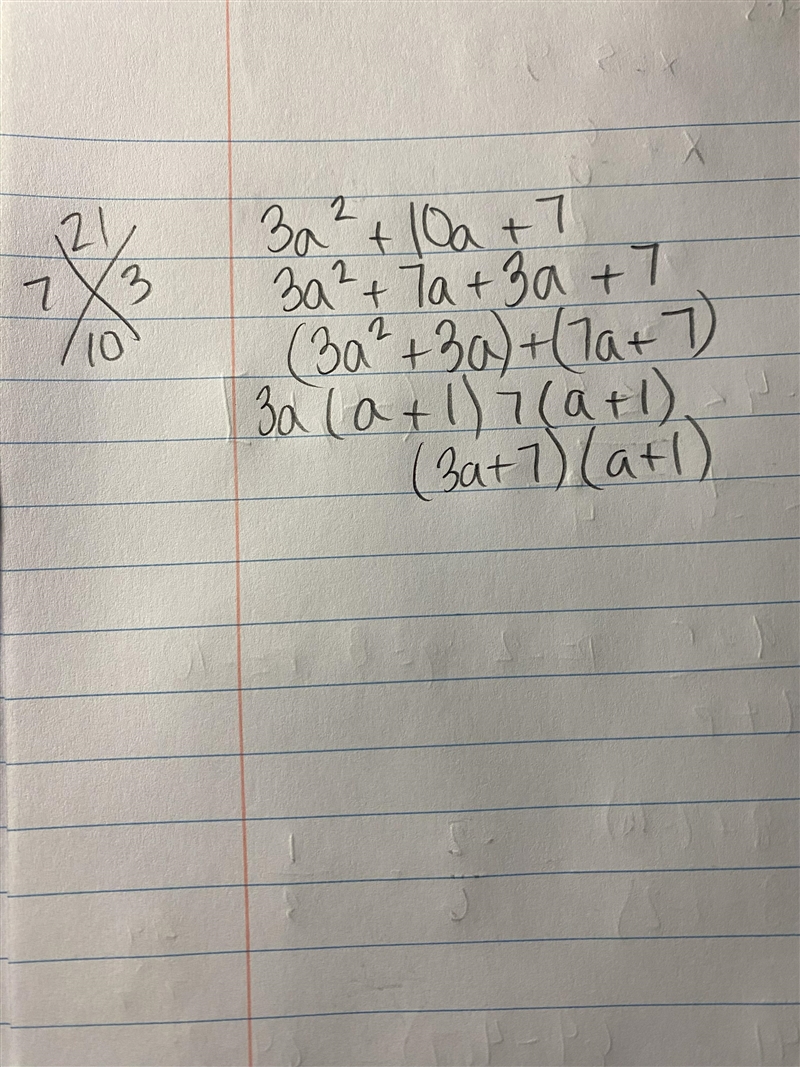 21
7 3
10
3a² + 10a + 7
3a² + 7a + 3a + 7
(3a² + 3a) + (7a + 7)
3a (a + 1) 7 (a + 1)
(3a + 7) (a + 1)